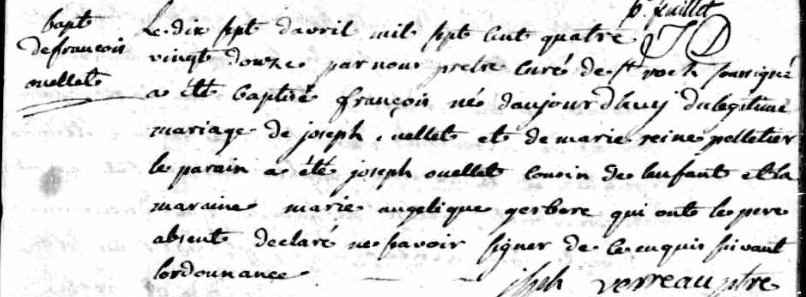 bapt
de françois
ouellets
Le dix sept davril mil sept cent quatre
vingt douze par nous pretre curé de st roch soussigné
a été baptisé françois né daujourdhuy du legitime
mariage de joseph ouellets et de marie reine pelletier
le parain a été joseph ouellet cousin de lenfant et la
maraine marie angelique gerbere qui ont le pere
absent declaré ne savoir signer de ce enquis suivant
lordonnance
jsph verreau ptre